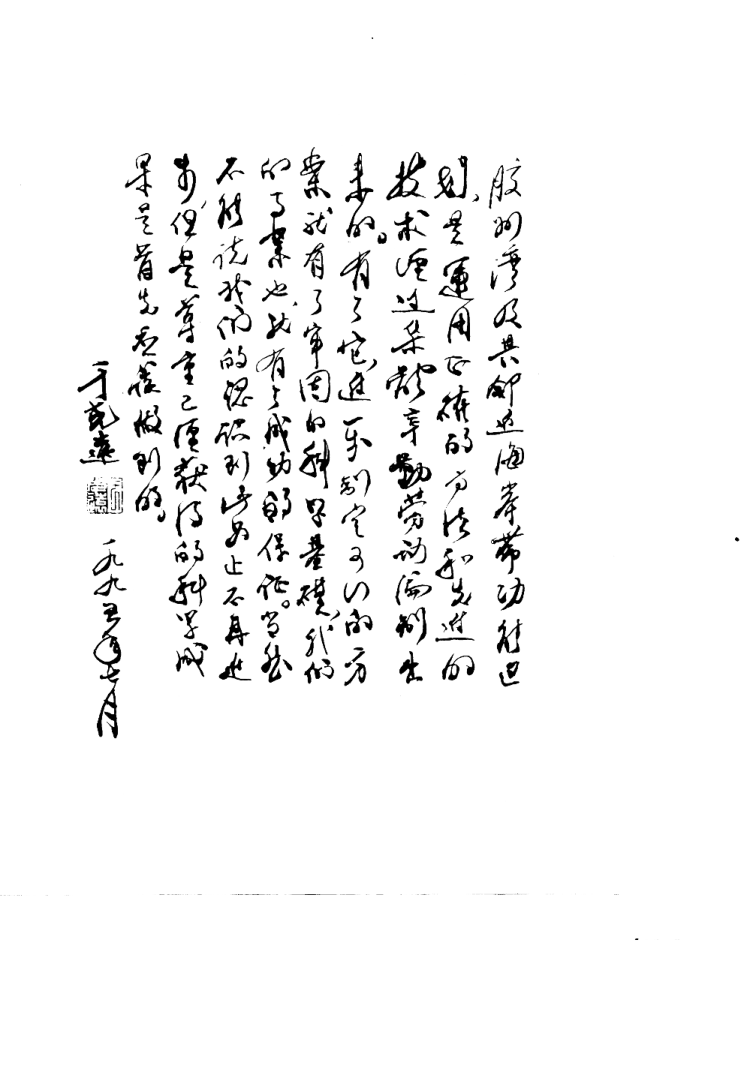 胶州湾及其邻近海岸带功能区
划，是运用正确的方法和先进的
技术经过集体辛勤劳动编制出
来的。有了它，进一步制定可行的方
案就有了牢固的科学基础，我们
的事业也就有了成功的保证。当然
不能说我们的认识到此为止不再进
步，但是尊重已经获得的科学成
果是首先应该做到的。
于光远
一九九五年七月